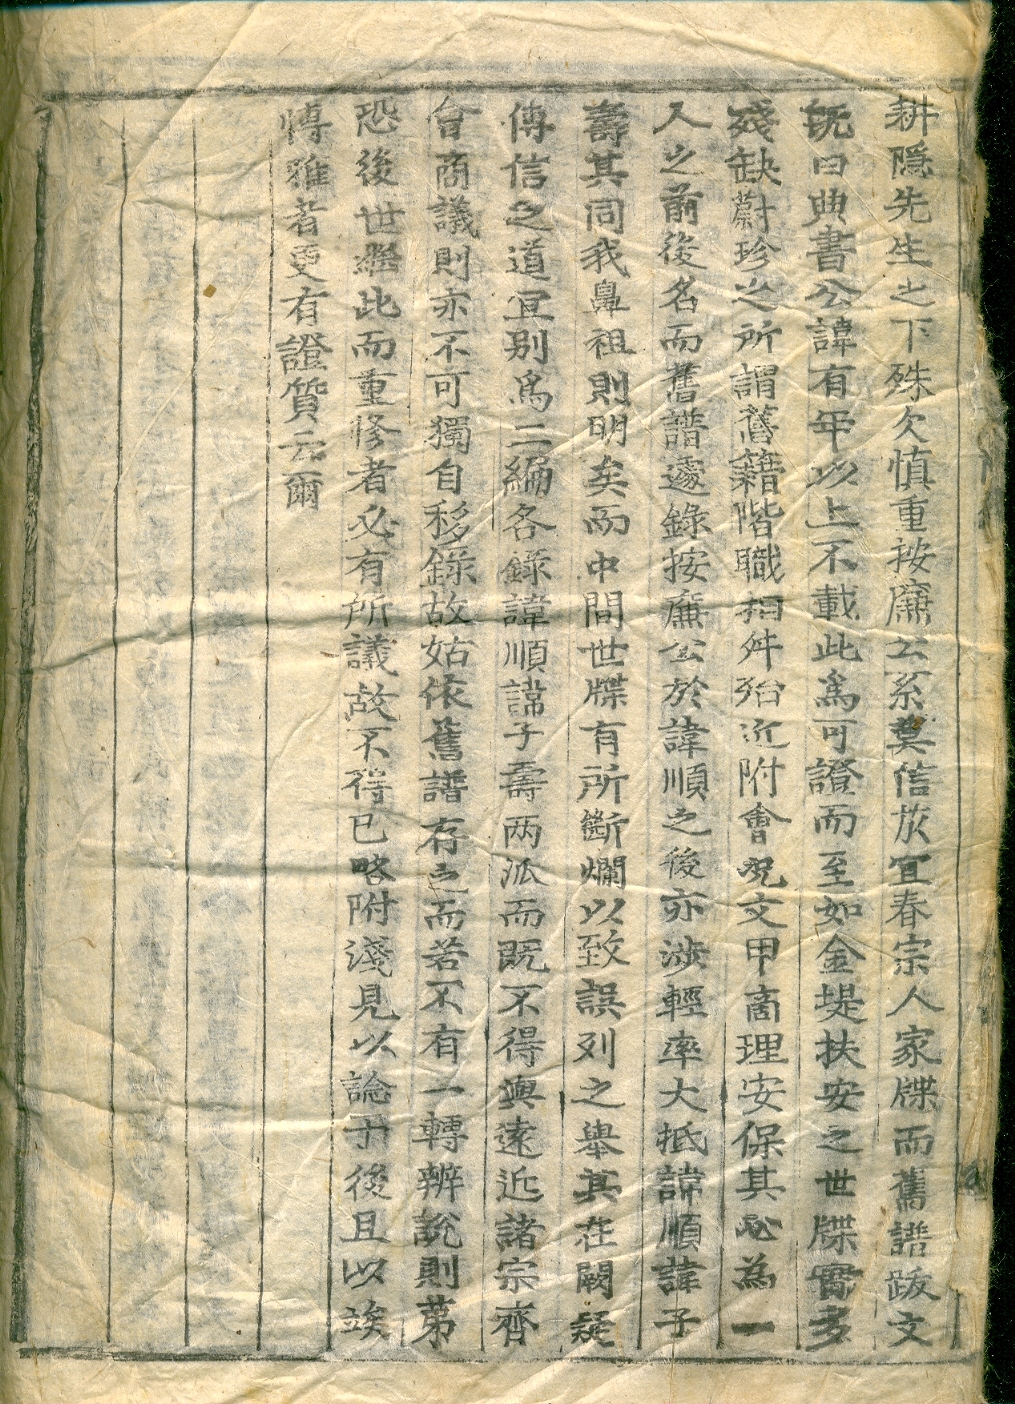 耕隱先生之下殊欠慎重按廉公系奠信於宜春宗人家牒而舊譜跋文
既曰典書公諱有年以上不載此爲可證而至如金堤扶安之世牒實多
殘缺蔚珍之所謂舊籍階職相舛殆近附會况文甲商理安保其必為一
人之前後名而舊譜遽錄按廉公於諱順之後亦涉輕率大抵諱順諱子
壽其同我鼻祖則明矣而中間世牒有所斷爛以致誤列之舉其在闕疑
傳信之道宜別爲二編各錄諱順諱子壽兩派而既不得與遠近諸宗齊
會商議則亦不可獨自移錄故姑依舊譜存之而若不有一轉辨說則第
恐後世繼此而重修者必有所議故不得已略附淺見以論于後且以竢
博雅者更有證質云爾